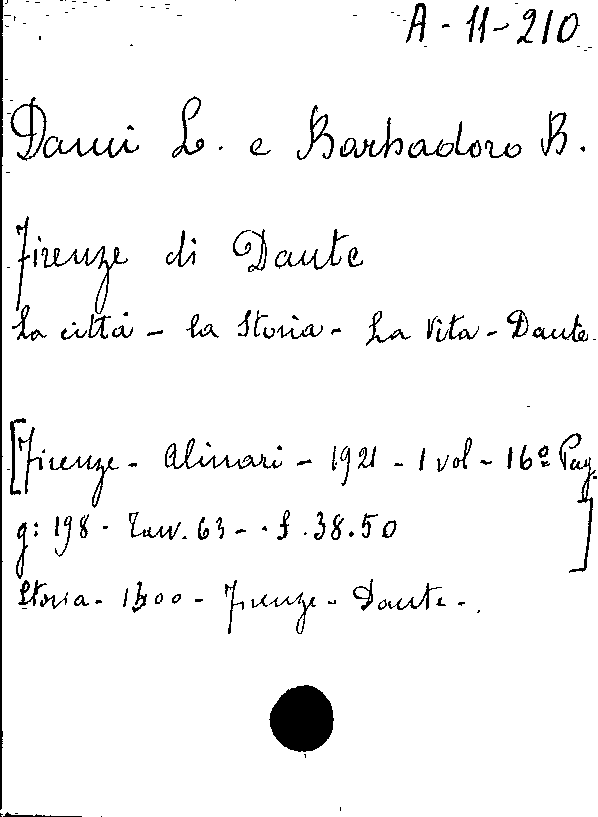 A-11-210
Dami L. e Barbadoro B.
Firenze di Dante
La città - la Storia - La Vita - Dante.
[Firenze - Alinari - 1921 - 1 vol - 16º Pag.
g: 198 - Tav. 63 - . £ .38.50 ]
Storia - 1300 - Firenze - Dante - .